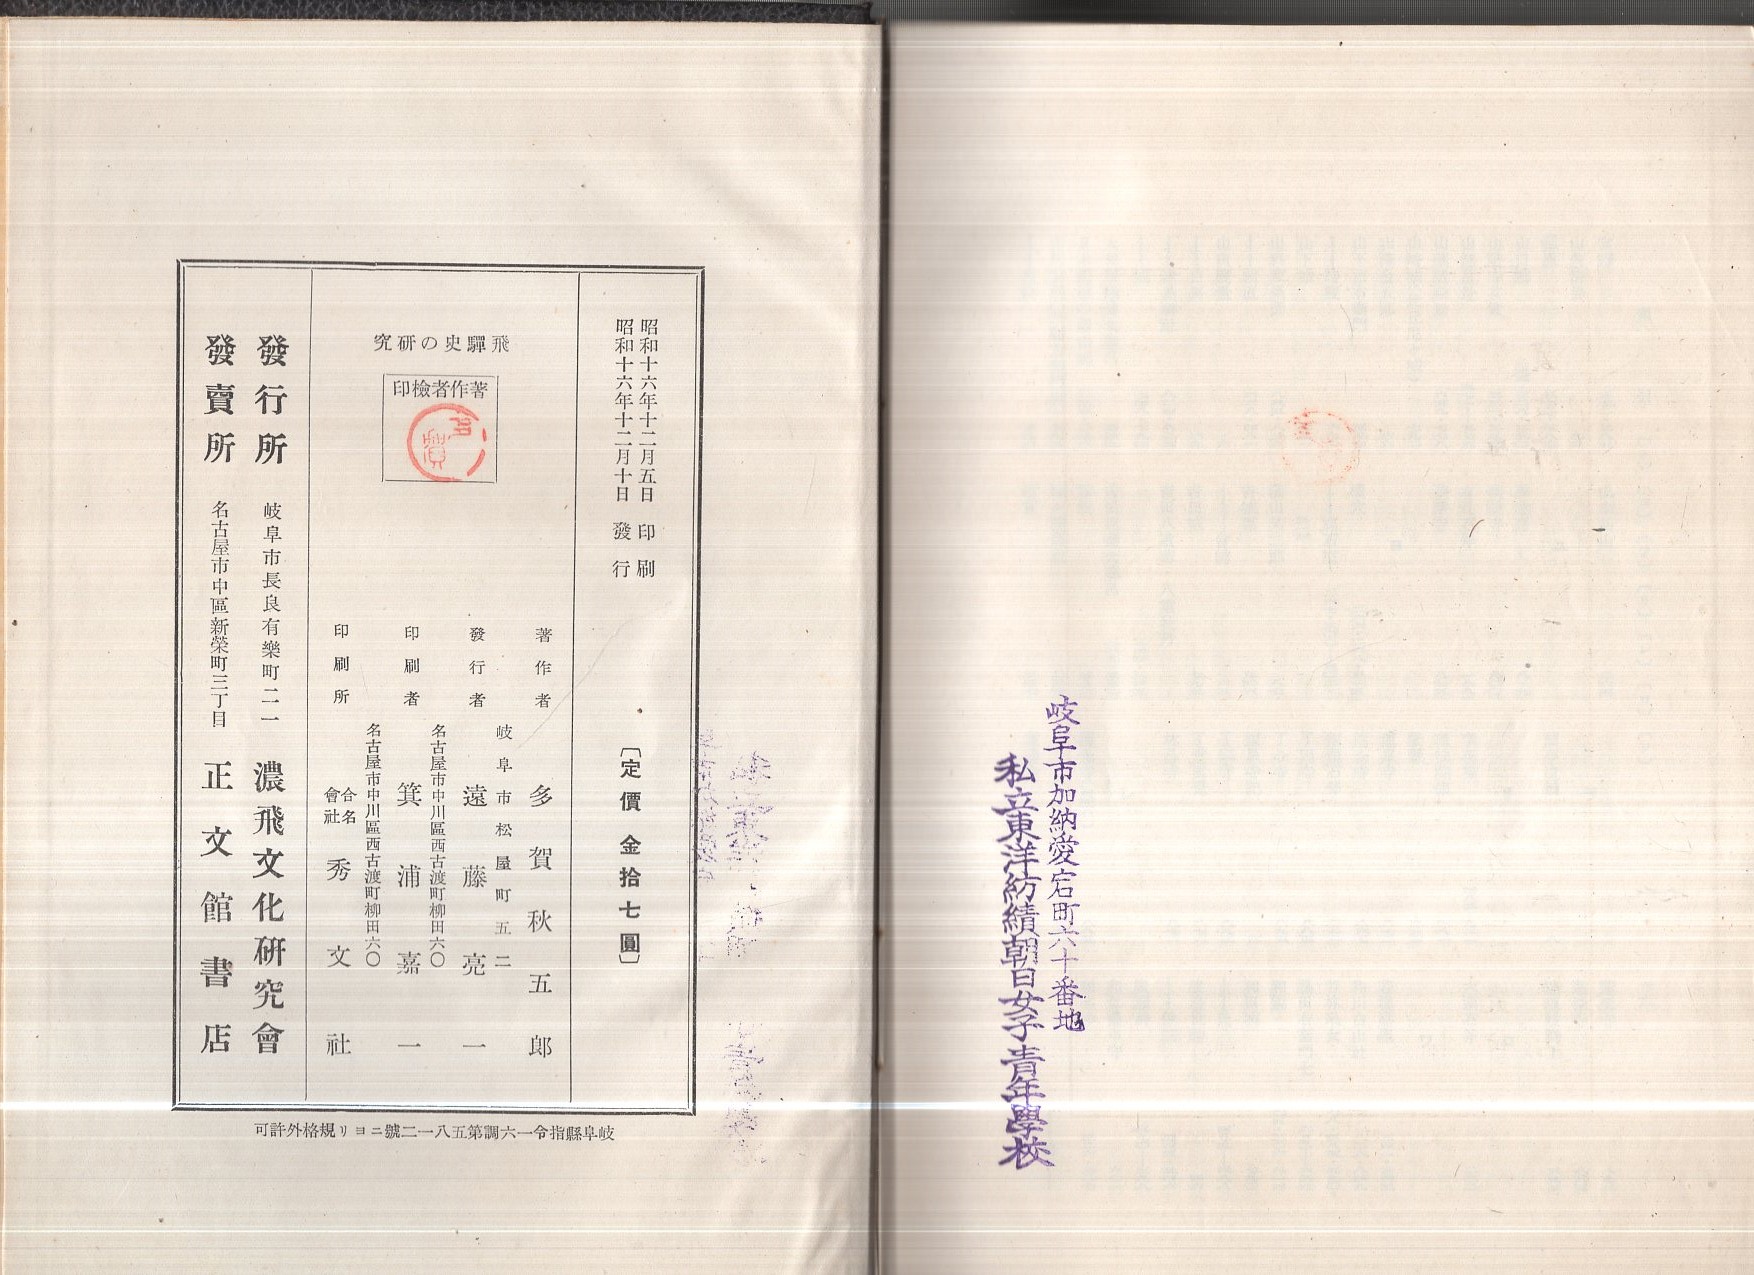 岐阜市加納愛宕町六十番地
私立東洋紡績朝日女子青年學校
昭和十六年十二月五日 印刷
昭和十六年十二月十日 發行
〔定價 金拾七圓〕
飛驒史の研究
著作者檢印
多賀
著作者 多賀秋五郎
岐阜市松屋町五二
發行者 遠藤亮一
名古屋市中川區西古渡町柳田六〇
印刷者 箕浦嘉一
名古屋市中川區西古渡町柳田六〇
印刷所 合名會社 秀文社
發行所 岐阜市長良有樂町二一 濃飛文化研究會
發賣所 名古屋市中區新榮町三丁目 正文館書店
岐阜縣指令一六調第五八一二號ニヨリ規格外許可